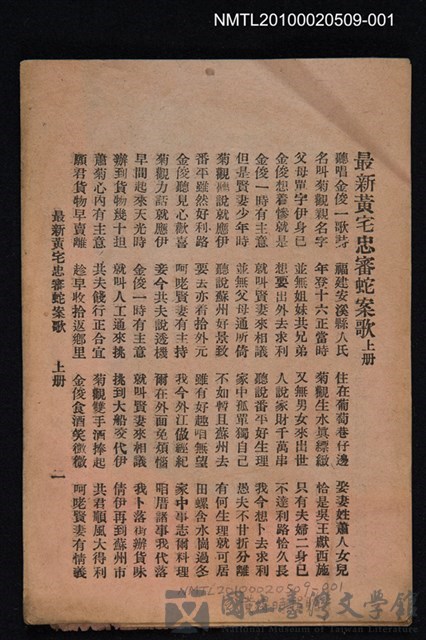 NMTL20100020509-001
最新黃宅忠審蛇案歌 上册
聽唱金俊一歌詩 福建安溪縣人氏 住在葡萄巷仔邊 娶妻姓蕭人女兒
名叫菊觀親名字 年登十六正當時 菊觀生水真縹緻 恰是吳王獻西施
父母單字伊身已 並無姐妹共兄弟 又無男女來出世 只有夫婦二身已
金俊想着慘就是 想要出外去求利 人說家財千萬串 不達利路恰久長
金俊一時有主意 就叫賢妻來相議 聽說番平好生理 我今想卜去求利
但是賢妻少年時 並無父母通所倚 家中孤單獨自己 愚夫不甘折分離
菊觀聽說就應伊 聽說蘇州好景致 不如暫且蘇州去 有何生理就可居
番平雖然好利路 要去亦着拾外元 雖有好趁咱無望 田螺含水崗過冬
金俊聽見心歡喜 呵咾賢妻有主持 我今外江做經紀 家中事志爾料理
菊觀力話就應伊 妾今共夫說透機 爾在外面免煩惱 咱厝諸事我代落
早間起來天光時 金俊一時有主意 就叫賢妻來相議 我卜落街辦貨味
辦到貨物幾十担 就叫人工通來挑 挑到大船交代伊 倩伊再到蘇州市
蕭菊心內有主意 共夫餞行正合宜 菊觀雙手酒捧起 共君順風大得利
願君貨物早賣離 趁早收拾返鄉里 金俊食酒笑微微 呵咾賢妻有情義
最新黃宅忠審蛇案歌 上册 一
NMTL20100020509-001
國立臺灣文學館
National Museum of Taiwan Literature